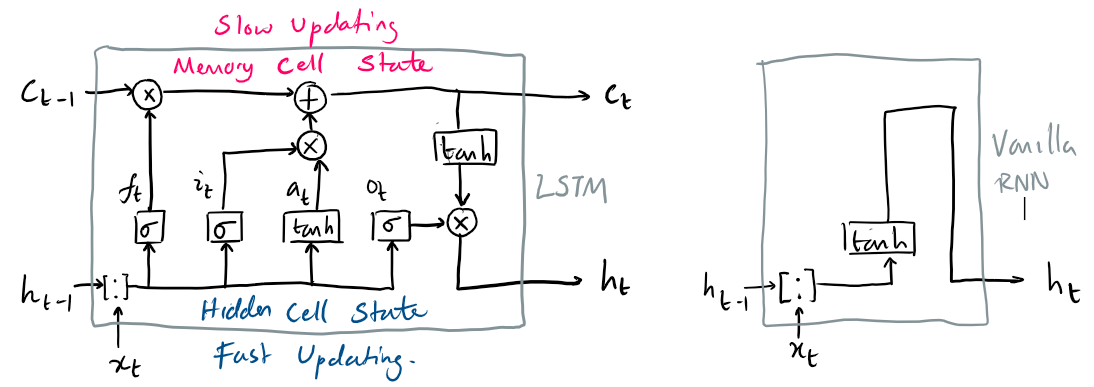 Slow Updating
Memory Cell State
C_{t-1}
×
+
C_t
×
tanh
f_t
i_t
a_t
o_t
LSTM
σ
σ
tanh
σ
×
h_{t-1}
[:]
h_t
Hidden Cell State
x_t
Fast Updating.
Vanilla
RNN
tanh
h_{t-1}
[:]
h_t
x_t